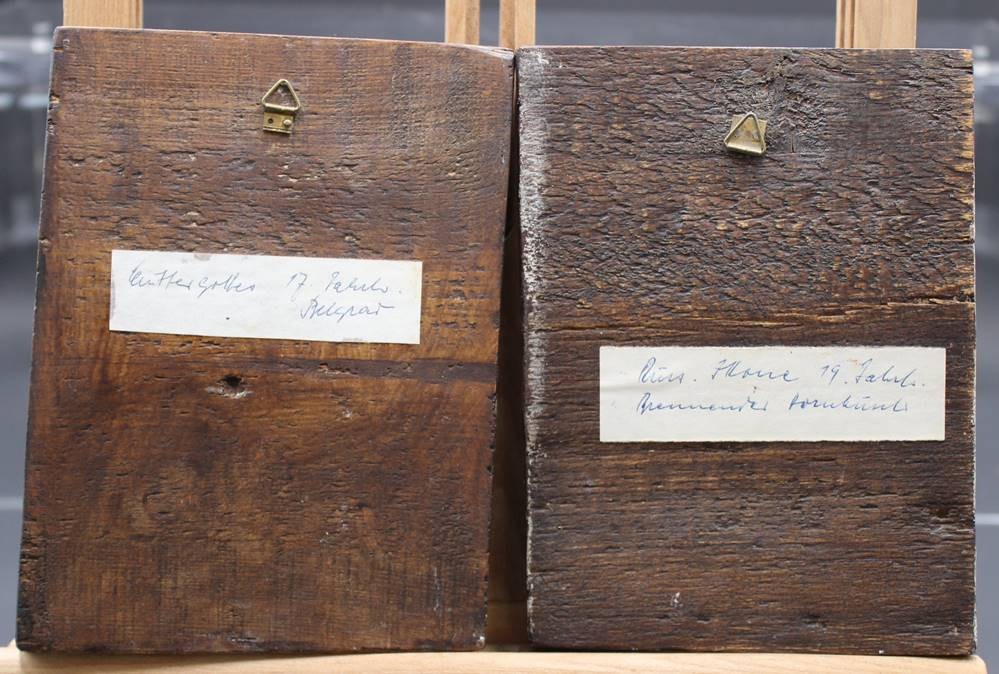 Muttergottes 17. Jahrh.
Belgrad
Russ. Ikone 19. Jahrh.
Brennender Dornbusch